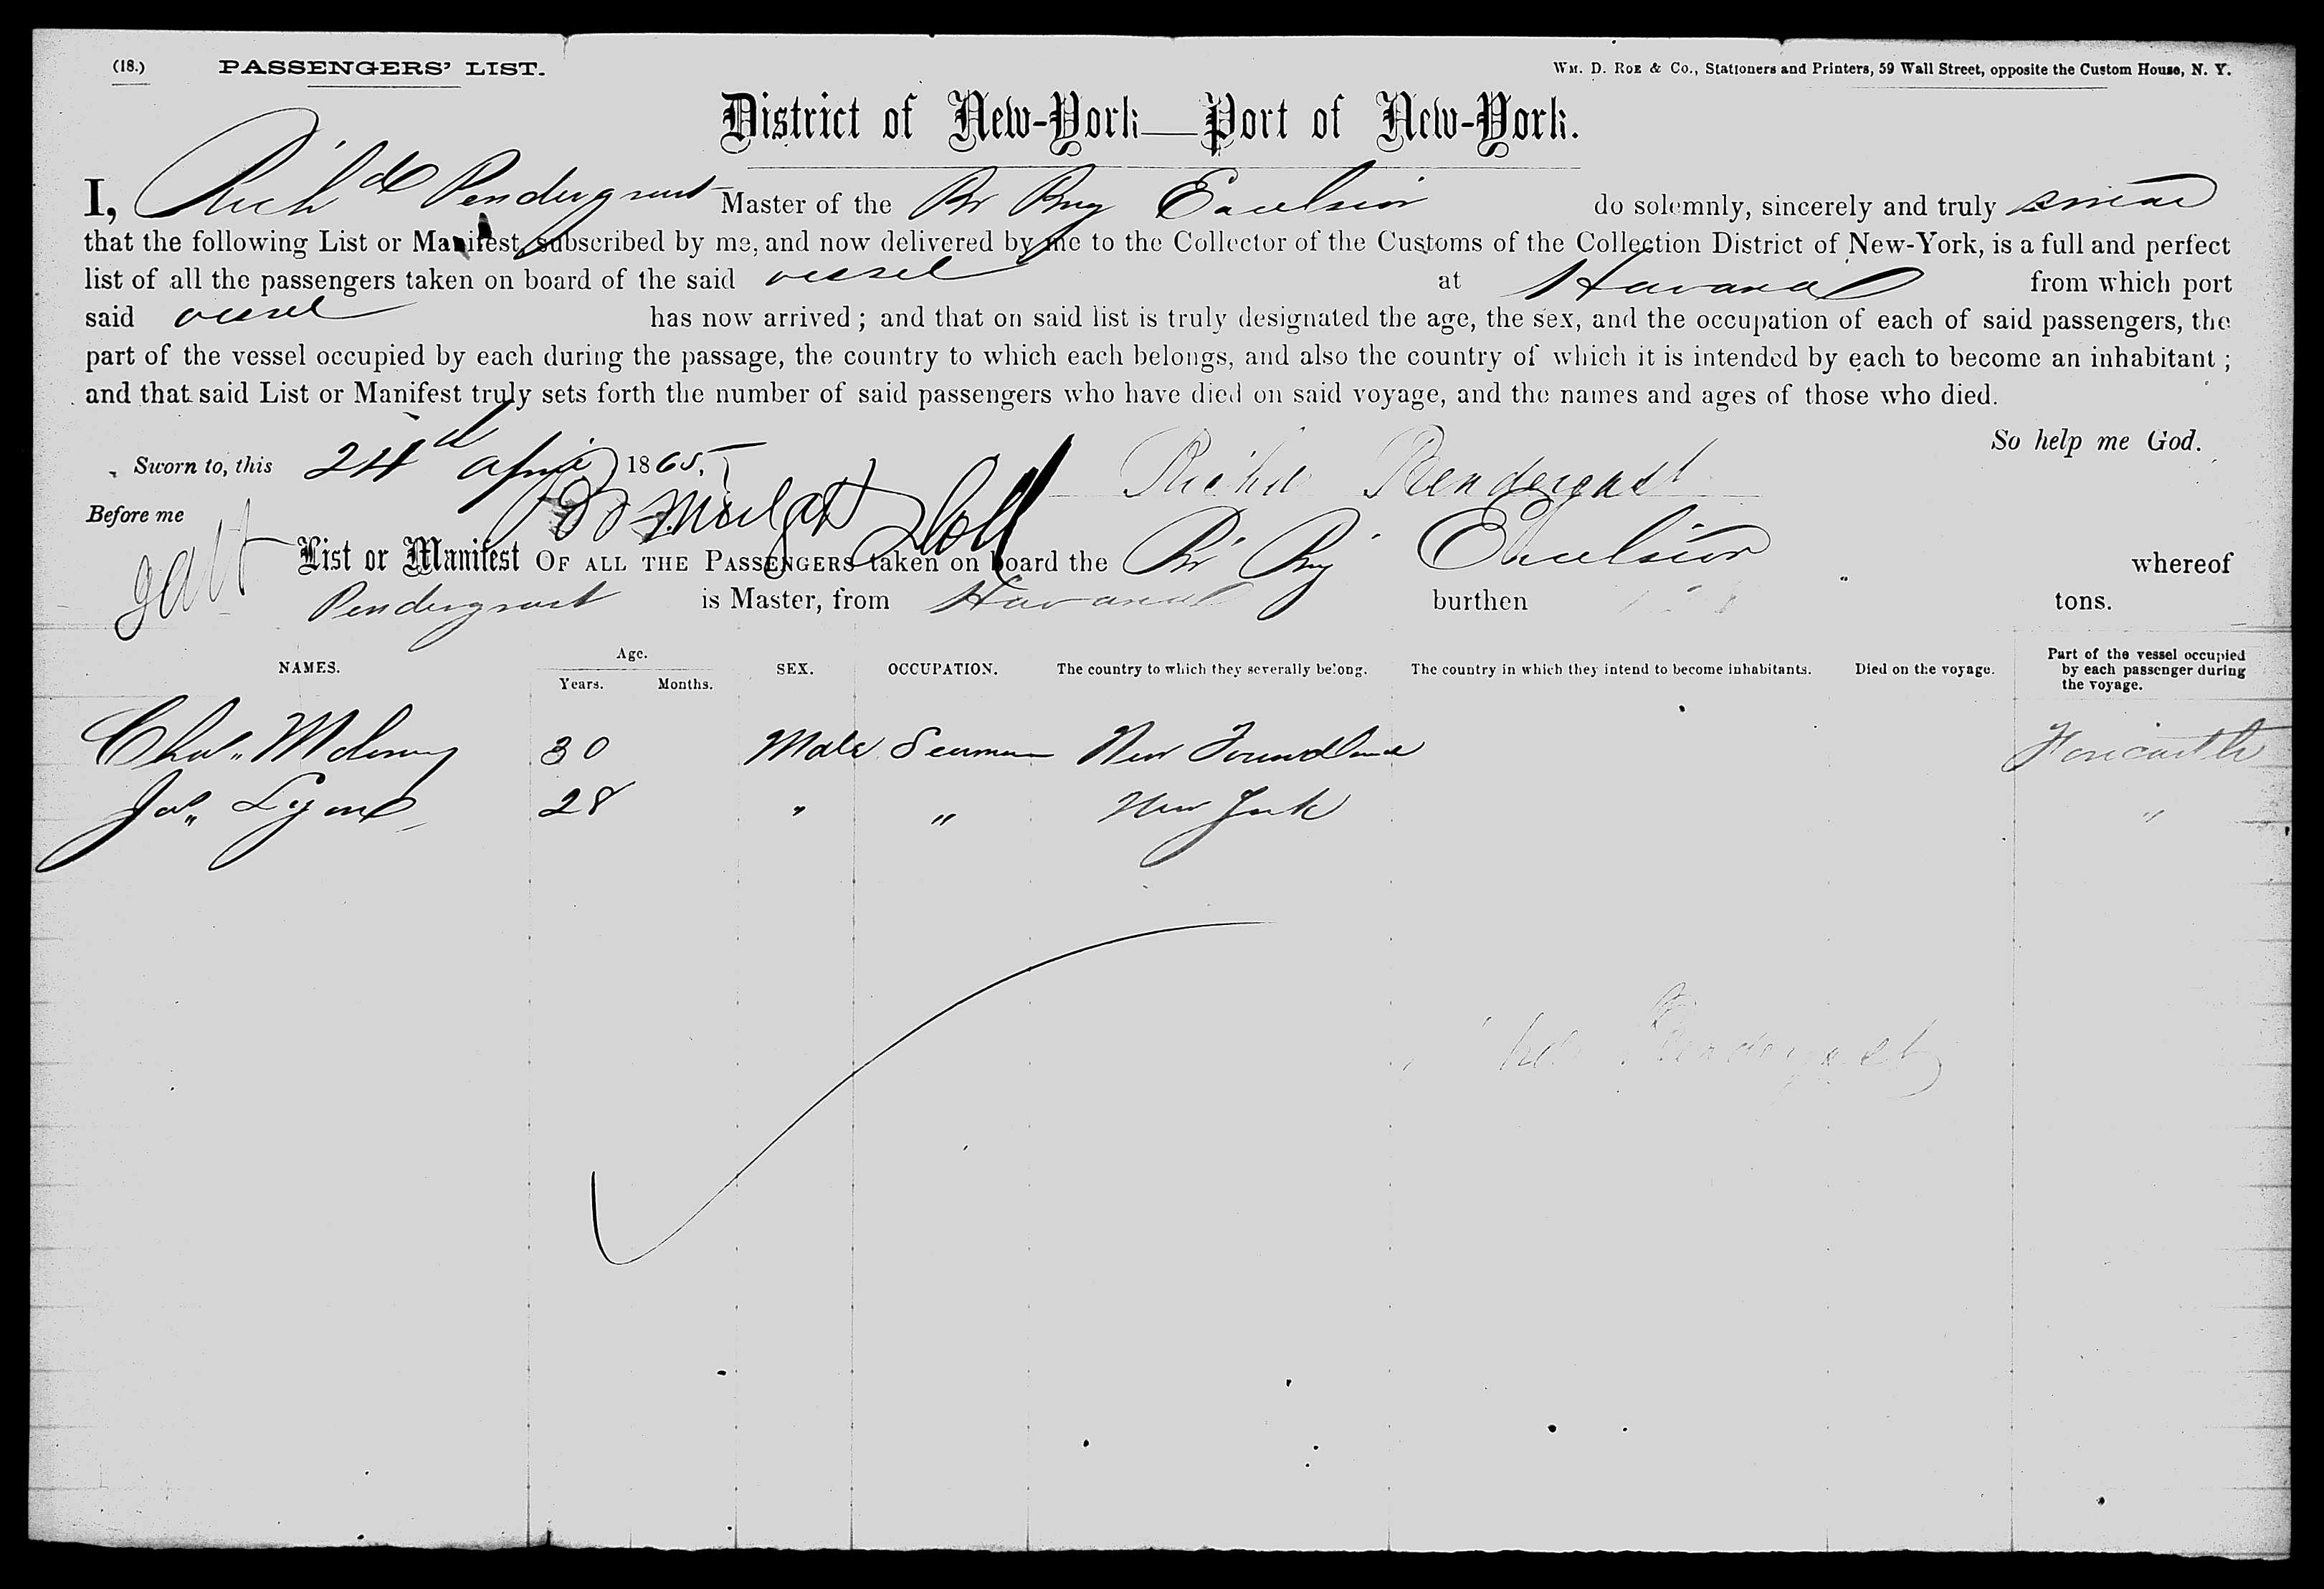 (18.) PASSENGERS' LIST. WM. D. ROE & Co., Stationers and Printers, 59 Wall Street, opposite the Custom House, N. Y.
District of New-York—Port of New-York.
I, Richd Pendergrast Master of the Br Brig Excelsior do solemnly, sincerely and truly swear
that the following List or Manifest, subscribed by me, and now delivered by me to the Collector of the Customs of the Collection District of New-York, is a full and perfect
list of all the passengers taken on board of the said vessel at Havana from which port
said vessel has now arrived; and that on said list is truly designated the age, the sex, and the occupation of each of said passengers, the
part of the vessel occupied by each during the passage, the country to which each belongs, and also the country of which it is intended by each to become an inhabitant;
and that said List or Manifest truly sets forth the number of said passengers who have died on said voyage, and the names and ages of those who died.
So help me God.
Sworn to, this 24th April 1865, Richd Pendergast
Before me
List or Manifest OF ALL THE PASSENGERS taken on board the Br Brig Excelsior whereof
Pendergrast is Master, from Havana burthen tons.
NAMES. Age. Years. Months. SEX. OCCUPATION. The country to which they severally belong. The country in which they intend to become inhabitants. Died on the voyage. Part of the vessel occupied by each passenger during the voyage.
Chas" Molony 30 Male Seaman New Foundland Forecastle
Jas" Lyons 28 " " New York "
Pendergast